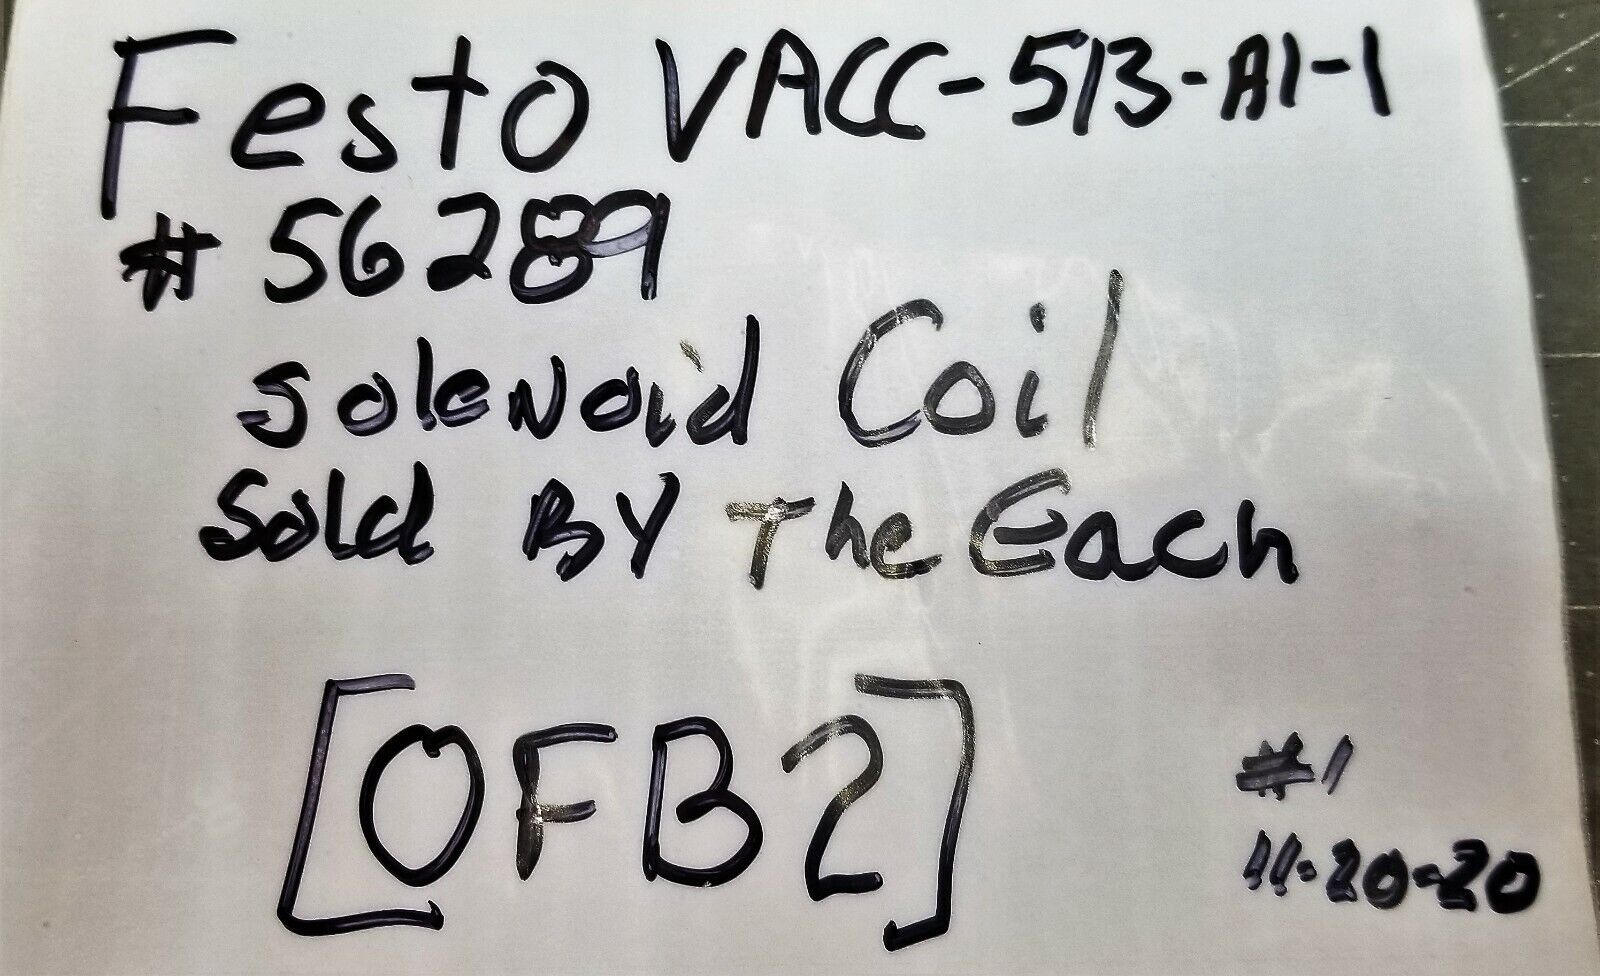 Festo VACC-513-A1-1
# 56289
Solenoid Coil
Sold By The Each
[OFB2]
#1
11-20-20